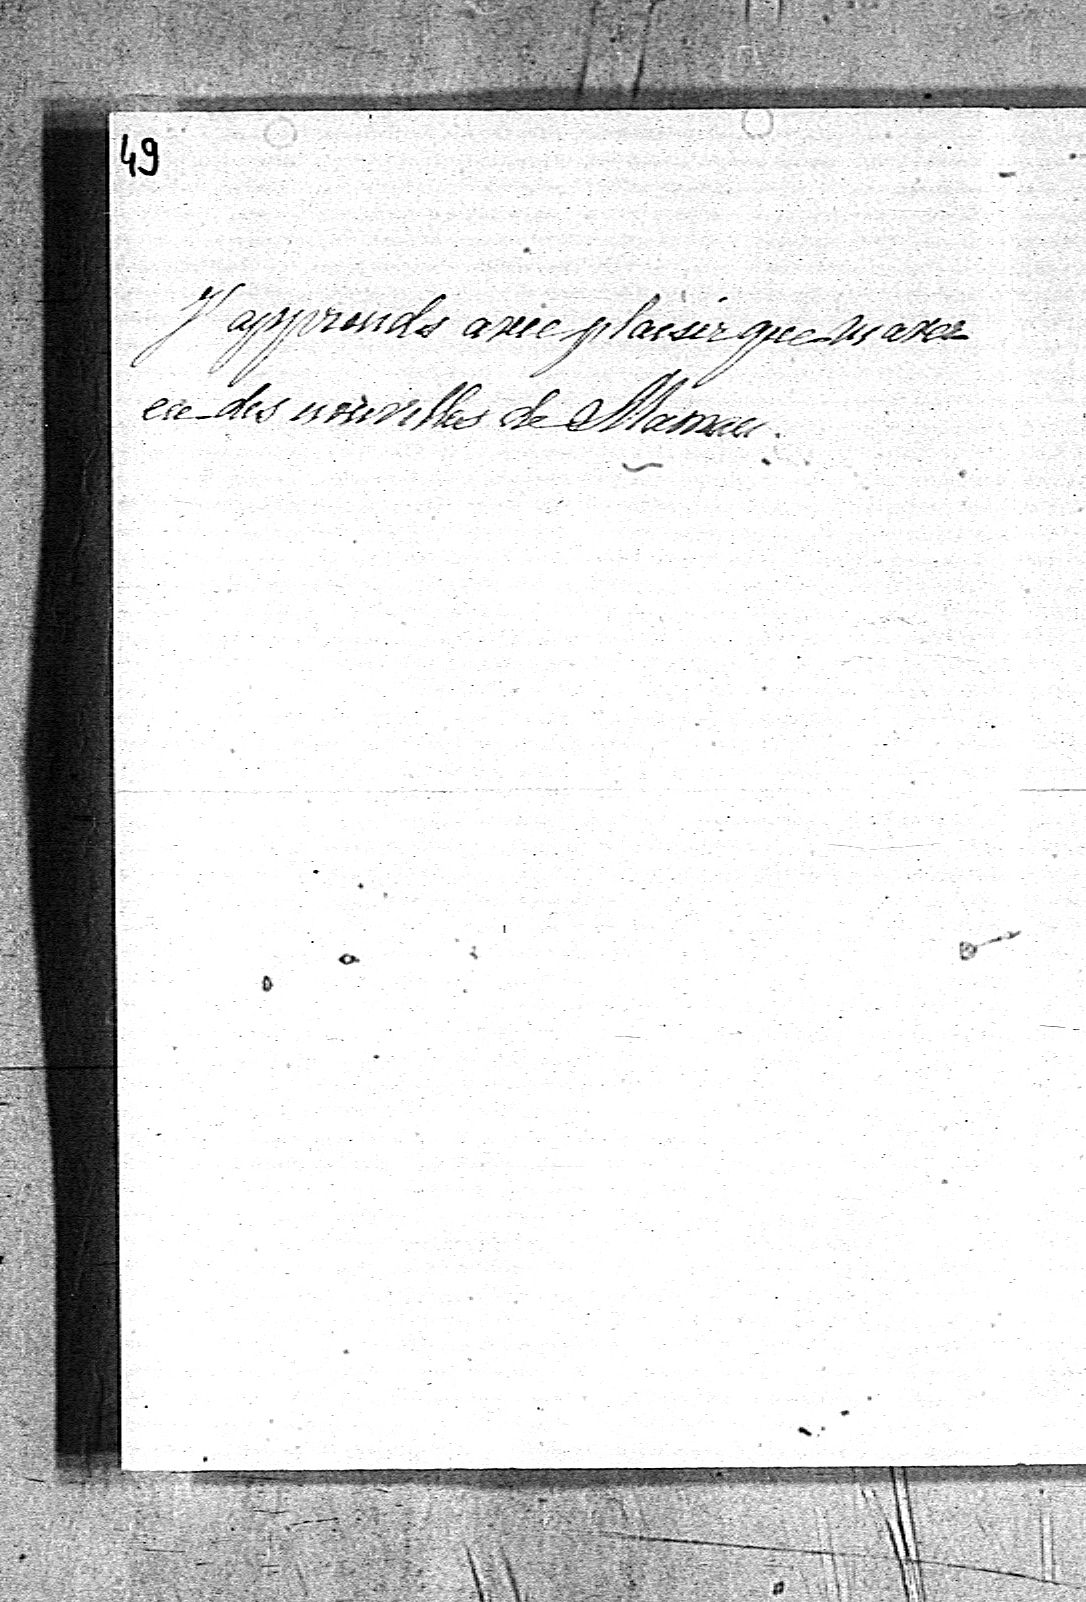 49
J'apprends avec plaisir que m avez
eu des nouvelles de Maman.